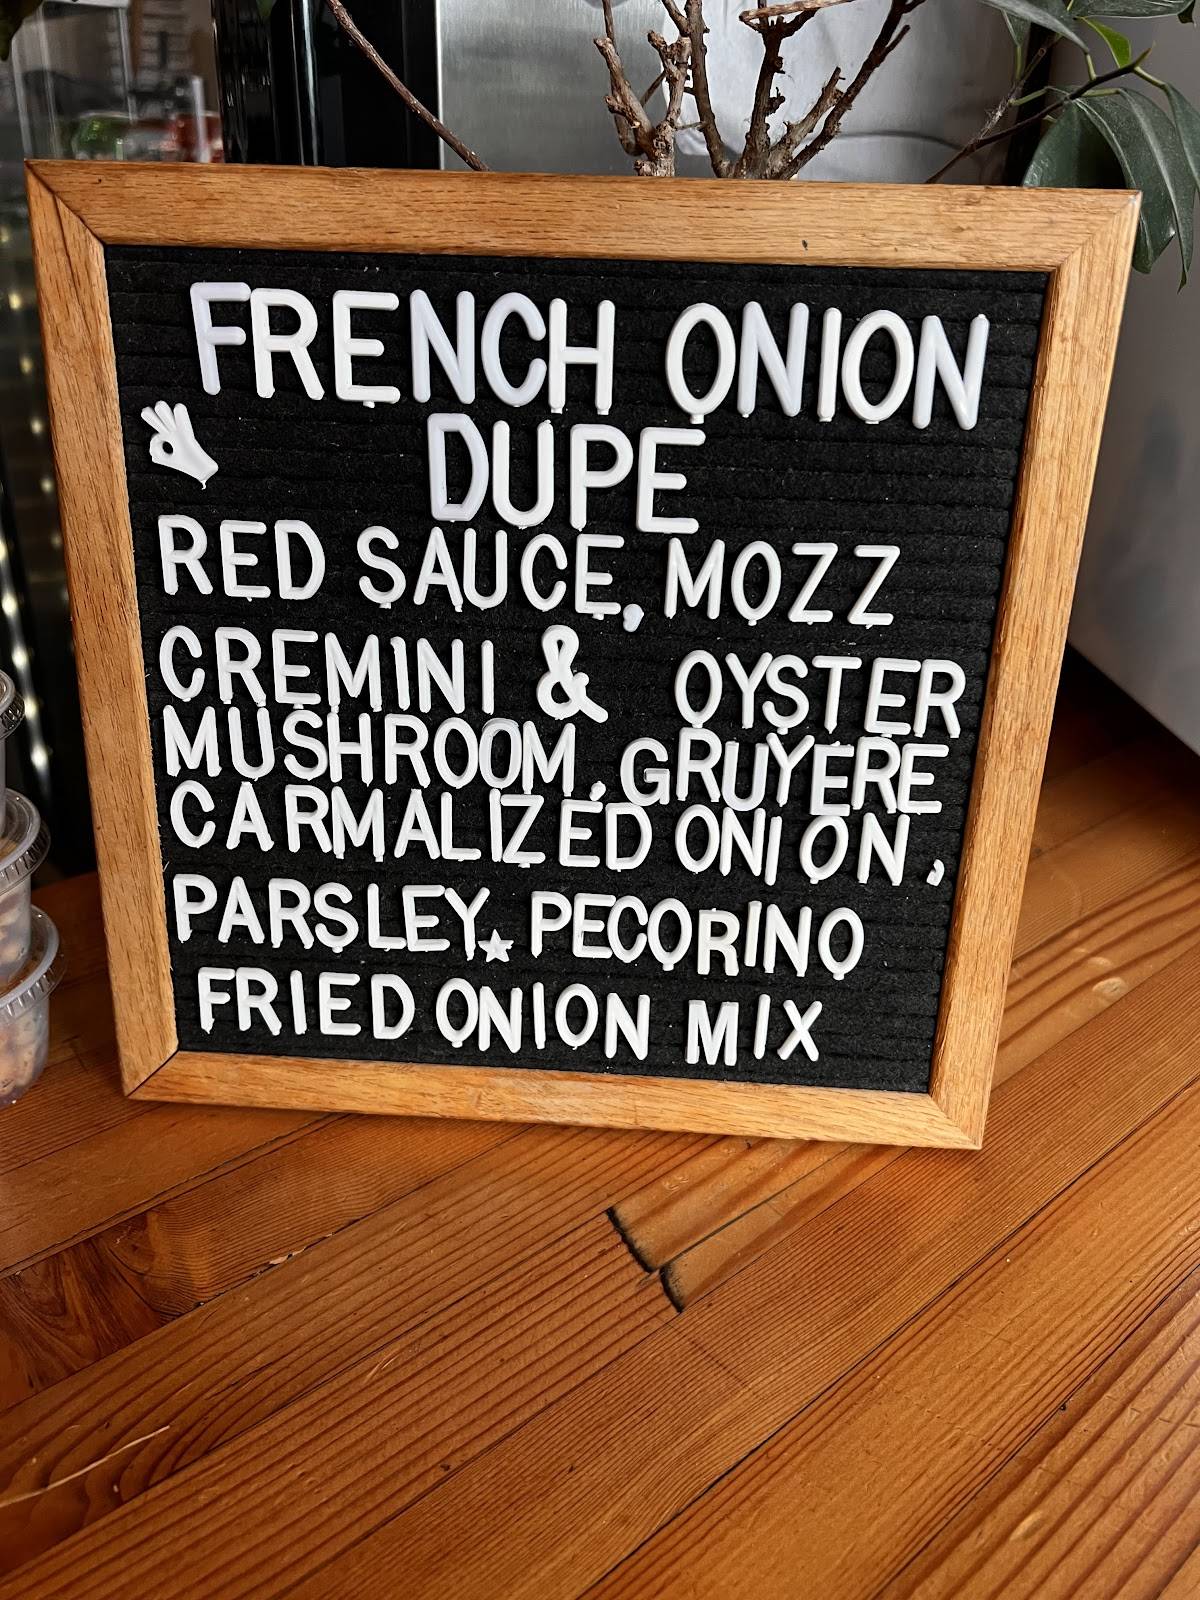 FRENCH ONION
DUPE
RED SAUCE, MOZZ
CREMINI & OYSTER
MUSHROOM, GRUYERE
CARMALIZED ONION,
PARSLEY, PECORINO
FRIED ONION MIX